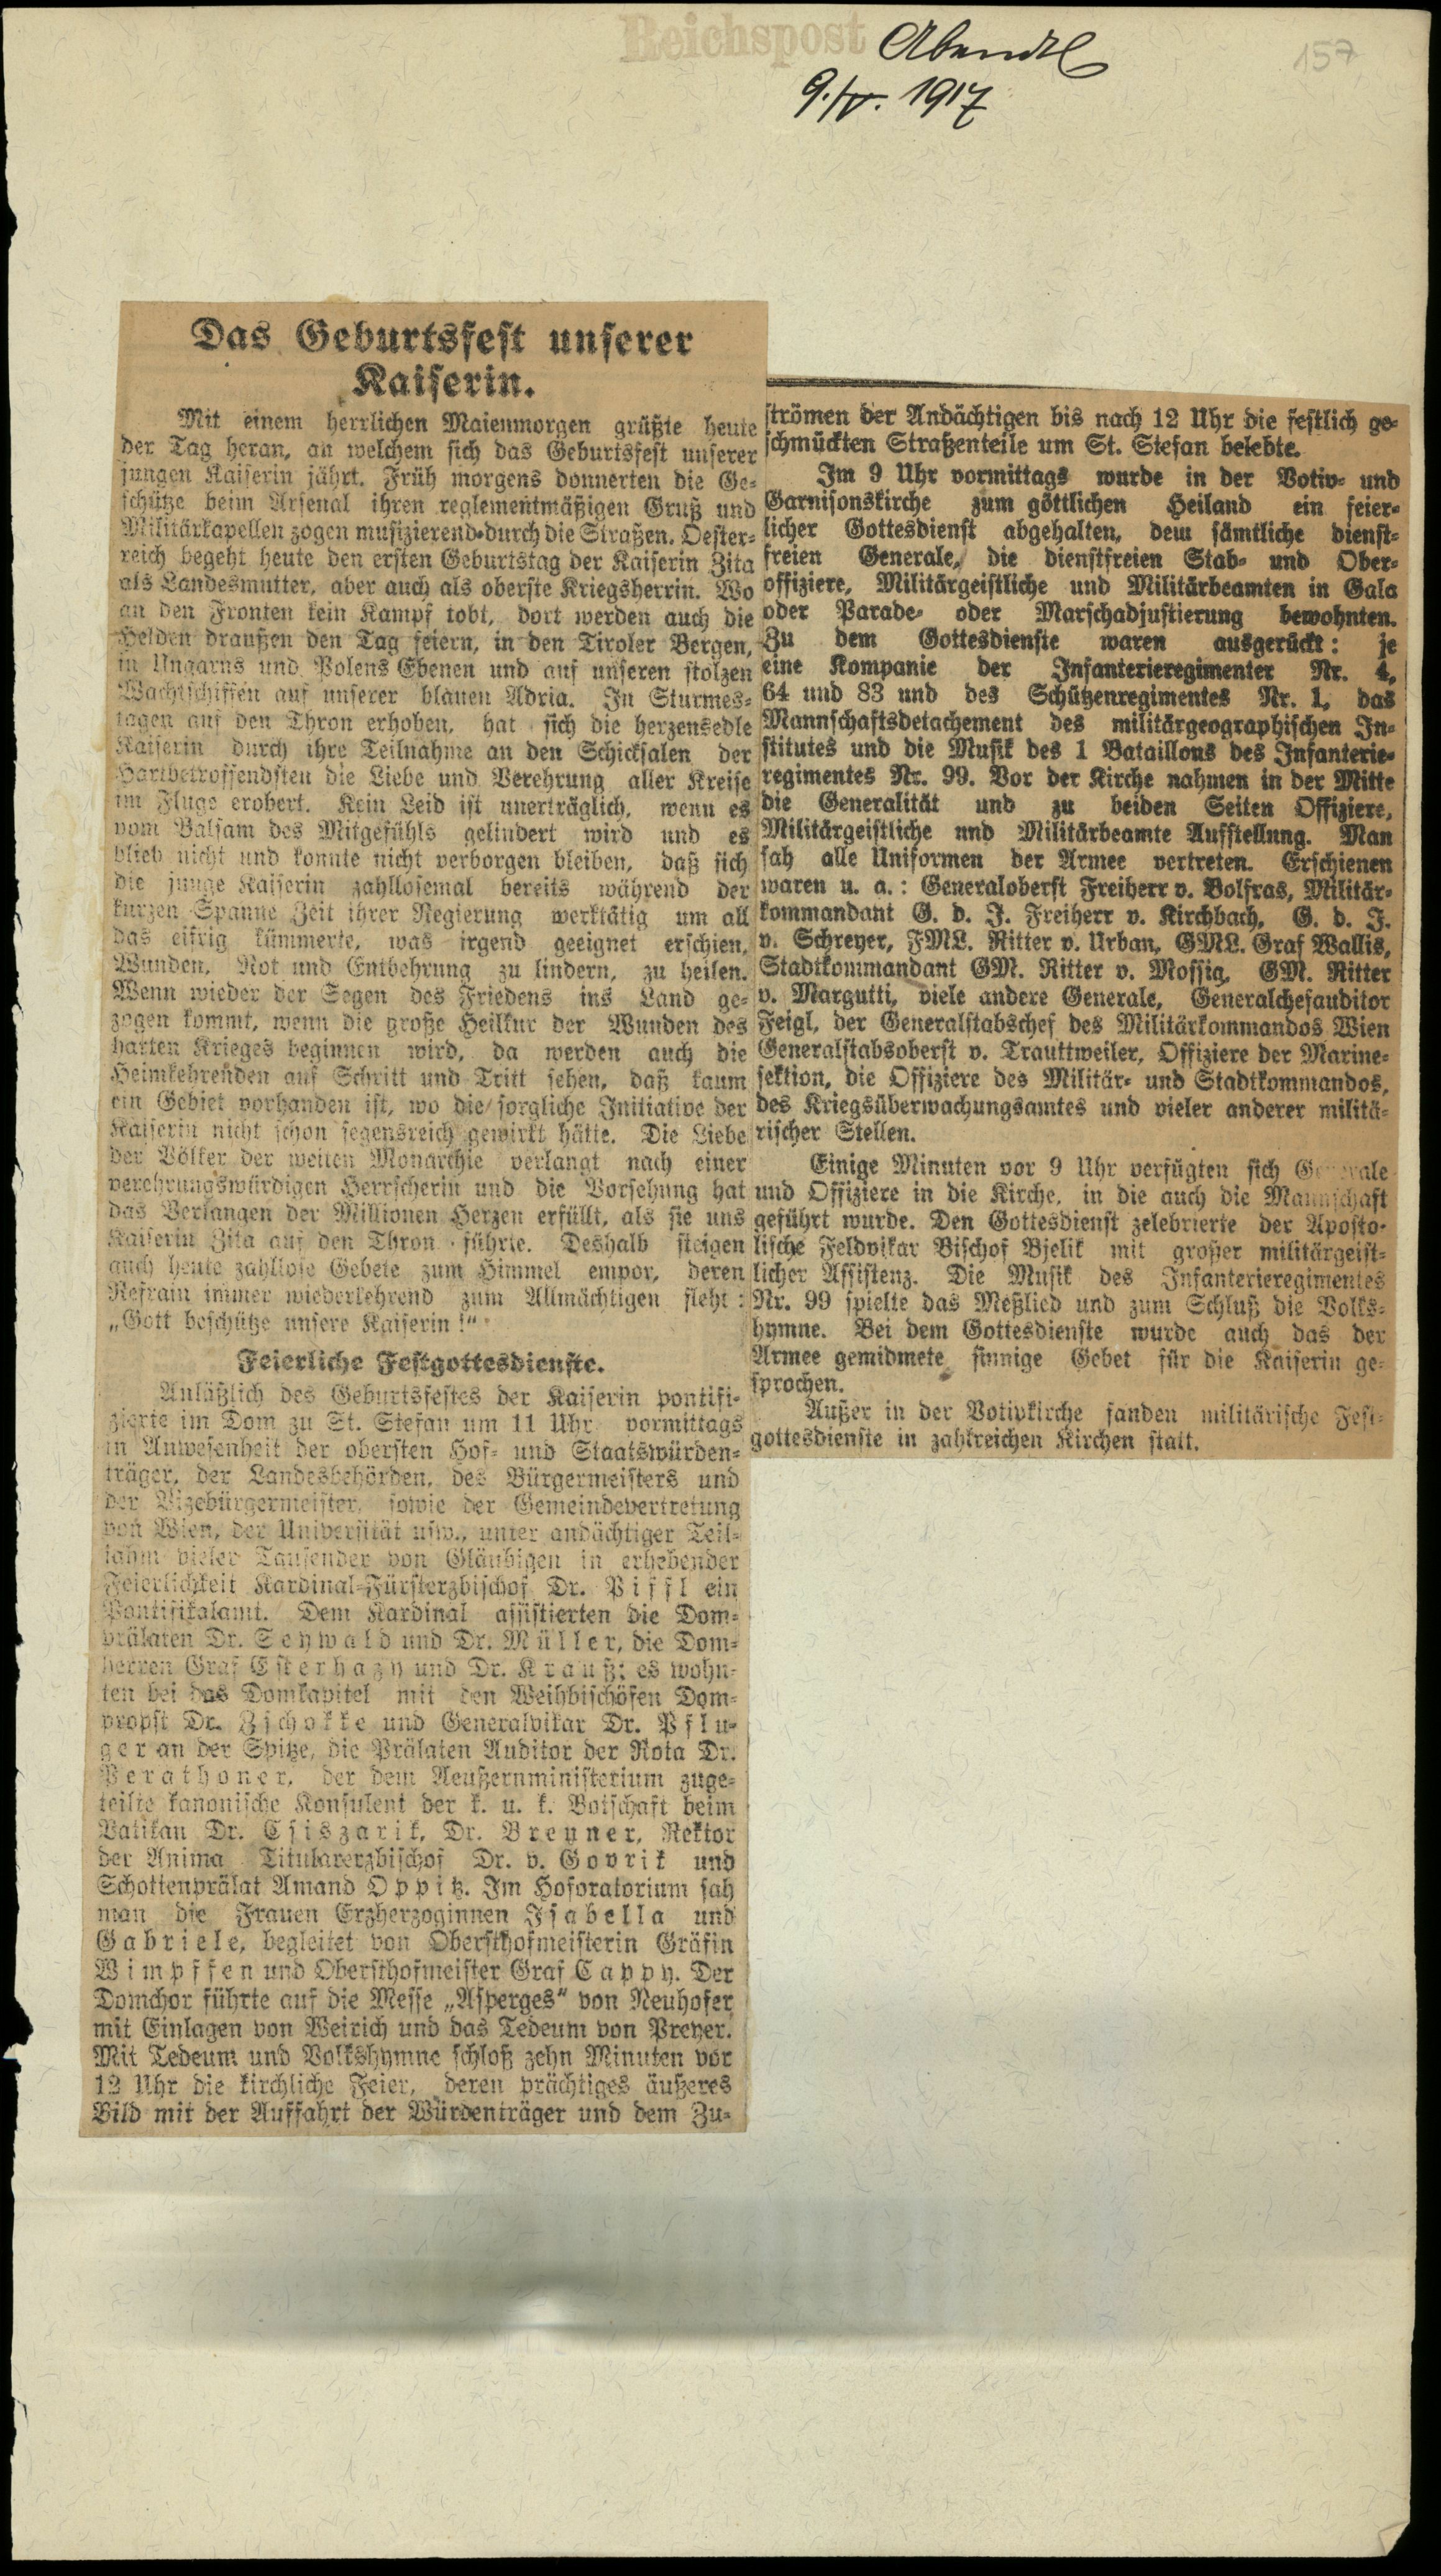 Reichspost Abendbl
9./V. 1917
157
Das Geburtsfest unserer
Kaiserin.
Mit einem herrlichen Maienmorgen grüßte heute
der Tag heran, an welchem sich das Geburtsfest unserer
jungen Kaiserin jährt. Früh morgens donnerten die Ge-
schütze beim Arsenal ihren reglementmäßigen Gruß und
Militärkapellen zogen musizierend durch die Straßen. Oester-
reich begeht heute den ersten Geburtstag der Kaiserin Zita
als Landesmutter, aber auch als oberste Kriegsherrin. Wo
an den Fronten kein Kampf tobt, dort werden auch die
Helden draußen den Tag feiern, in den Tiroler Bergen,
in Ungarns und Polens Ebenen und auf unseren stolzen
Wachtschiffen auf unserer blauen Adria. In Sturmes-
tagen auf den Thron erhoben, hat sich die herzensedle
Kaiserin durch ihre Teilnahme an den Schicksalen der
Hartbetroffendsten die Liebe und Verehrung aller Kreise
im Fluge erobert. Kein Leid ist unerträglich, wenn es
vom Balsam des Mitgefühls gelindert wird und es
blieb nicht und konnte nicht verborgen bleiben, daß sich
die junge Kaiserin zahllosemal bereits während der
kurzen Spanne Zeit ihrer Regierung werktätig um all
das eifrig kümmerte, was irgend geeignet erschien,
Wunden, Not und Entbehrung zu lindern, zu heilen.
Wenn wieder der Segen des Friedens ins Land ge-
zogen kommt, wenn die große Heilkur der Wunden des
harten Krieges beginnen wird, da werden auch die
Heimkehrenden auf Schritt und Tritt sehen, daß kaum
ein Gebiet vorhanden ist, wo die sorgliche Initiative der
Kaiserin nicht schon segensreich gewirkt hätte. Die Liebe
der Völker der weiten Monarchie verlangt nach einer
verehrungswürdigen Herrscherin und die Vorsehung hat
das Verlangen der Millionen Herzen erfüllt, als sie uns
Kaiserin Zita auf den Thron führte. Deshalb steigen
auch heute zahllose Gebete zum Himmel empor, deren
Refrain immer wiederkehrend zum Allmächtigen fleht:
„Gott beschütze unsere Kaiserin!"
Feierliche Festgottesdienste.
Anläßlich des Geburtsfestes der Kaiserin pontifi-
zierte im Dom zu St. Stefan um 11 Uhr vormittags
in Anwesenheit der obersten Hof- und Staatswürden-
träger, der Landesbehörden, des Bürgermeisters und
der Vizebürgermeister, sowie der Gemeindevertretung
von Wien, der Universität usw., unter andächtiger Teil-
nahm vieler Tausender von Gläubigen in erhebender
Feierlichkeit Kardinal-Fürsterzbischof Dr. Piffl ein
Pontifikalamt. Dem Kardinal assistierten die Dom-
prälaten Dr. Seywald und Dr. Müller, die Dom-
herren Graf Esterhazy und Dr. Krauß; es wohn-
ten bei das Domkapitel mit den Weihbischöfen Dom-
propst Dr. Zschokke und Generalvikar Dr. Pflu-
ger an der Spitze, die Prälaten Auditor der Rota Dr.
Perathoner, der dem Aeußernministerium zuge-
teilte kanonische Konsulent der k. u. k. Botschaft beim
Vatikan Dr. Csiszarik, Dr. Brenner, Rektor
der Anima Titularerzbischof Dr. v. Govrik und
Schottenprälat Amand Oppitz. Im Hoforatorium sah
man die Frauen Erzherzoginnen Isabella und
Gabriele, begleitet von Obersthofmeisterin Gräfin
Wimpffen und Obersthofmeister Graf Cappy. Der
Domchor führte auf die Messe „Asperges" von Neuhofer
mit Einlagen von Weirich und das Tedeum von Preyer.
Mit Tedeum und Volkshymne schloß zehn Minuten vor
12 Uhr die kirchliche Feier, deren prächtiges äußeres
Bild mit der Auffahrt der Würdenträger und dem Zu-
strömen der Andächtigen bis nach 12 Uhr die festlich ge-
schmückten Straßenteile um St. Stefan belebte.
Im 9 Uhr vormittags wurde in der Votiv- und
Garnisonskirche zum göttlichen Heiland ein feier-
licher Gottesdienst abgehalten, dem sämtliche dienst-
freien Generale, die dienstfreien Stab- und Ober-
offiziere, Militärgeistliche und Militärbeamten in Gala
oder Parade- oder Marschadjustierung bewohnten.
Zu dem Gottesdienste waren ausgerückt: je
eine Kompanie der Infanterieregimenter Nr. 4,
64 und 83 und des Schützenregimentes Nr. 1, das
Mannschaftsdetachement des militärgeographischen In-
stitutes und die Musik des 1 Bataillons des Infanterie-
regimentes Nr. 99. Vor der Kirche nahmen in der Mitte
die Generalität und zu beiden Seiten Offiziere,
Militärgeistliche und Militärbeamte Aufstellung. Man
sah alle Uniformen der Armee vertreten. Erschienen
waren u. a.: Generaloberst Freiherr v. Bolfras, Militär-
kommandant G. d. J. Freiherr v. Kirchbach, G. d. J.
v. Schreyer, FML. Ritter v. Urban, GML. Graf Wallis,
Stadtkommandant GM. Ritter v. Mossig, GM. Ritter
v. Margutti, viele andere Generale, Generalchefauditor
Feigl, der Generalstabschef des Militärkommandos Wien
Generalstabsoberst v. Trauttweiler, Offiziere der Marine-
sektion, die Offiziere des Militär- und Stadtkommandos,
des Kriegsüberwachungsamtes und vieler anderer militä-
rischer Stellen.
Einige Minuten vor 9 Uhr verfügten sich Generale
und Offiziere in die Kirche, in die auch die Mannschaft
geführt wurde. Den Gottesdienst zelebrierte der Aposto-
lische Feldvikar Bischof Bjelik mit großer militärgeist-
licher Assistenz. Die Musik des Infanterieregimentes
Nr. 99 spielte das Meßlied und zum Schluß die Volks-
hymne. Bei dem Gottesdienste wurde auch das der
Armee gemidmete sinnige Gebet für die Kaiserin ge-
sprochen.
Außer in der Votivkirche fanden militärische Fest-
gottesdienste in zahlreichen Kirchen statt.